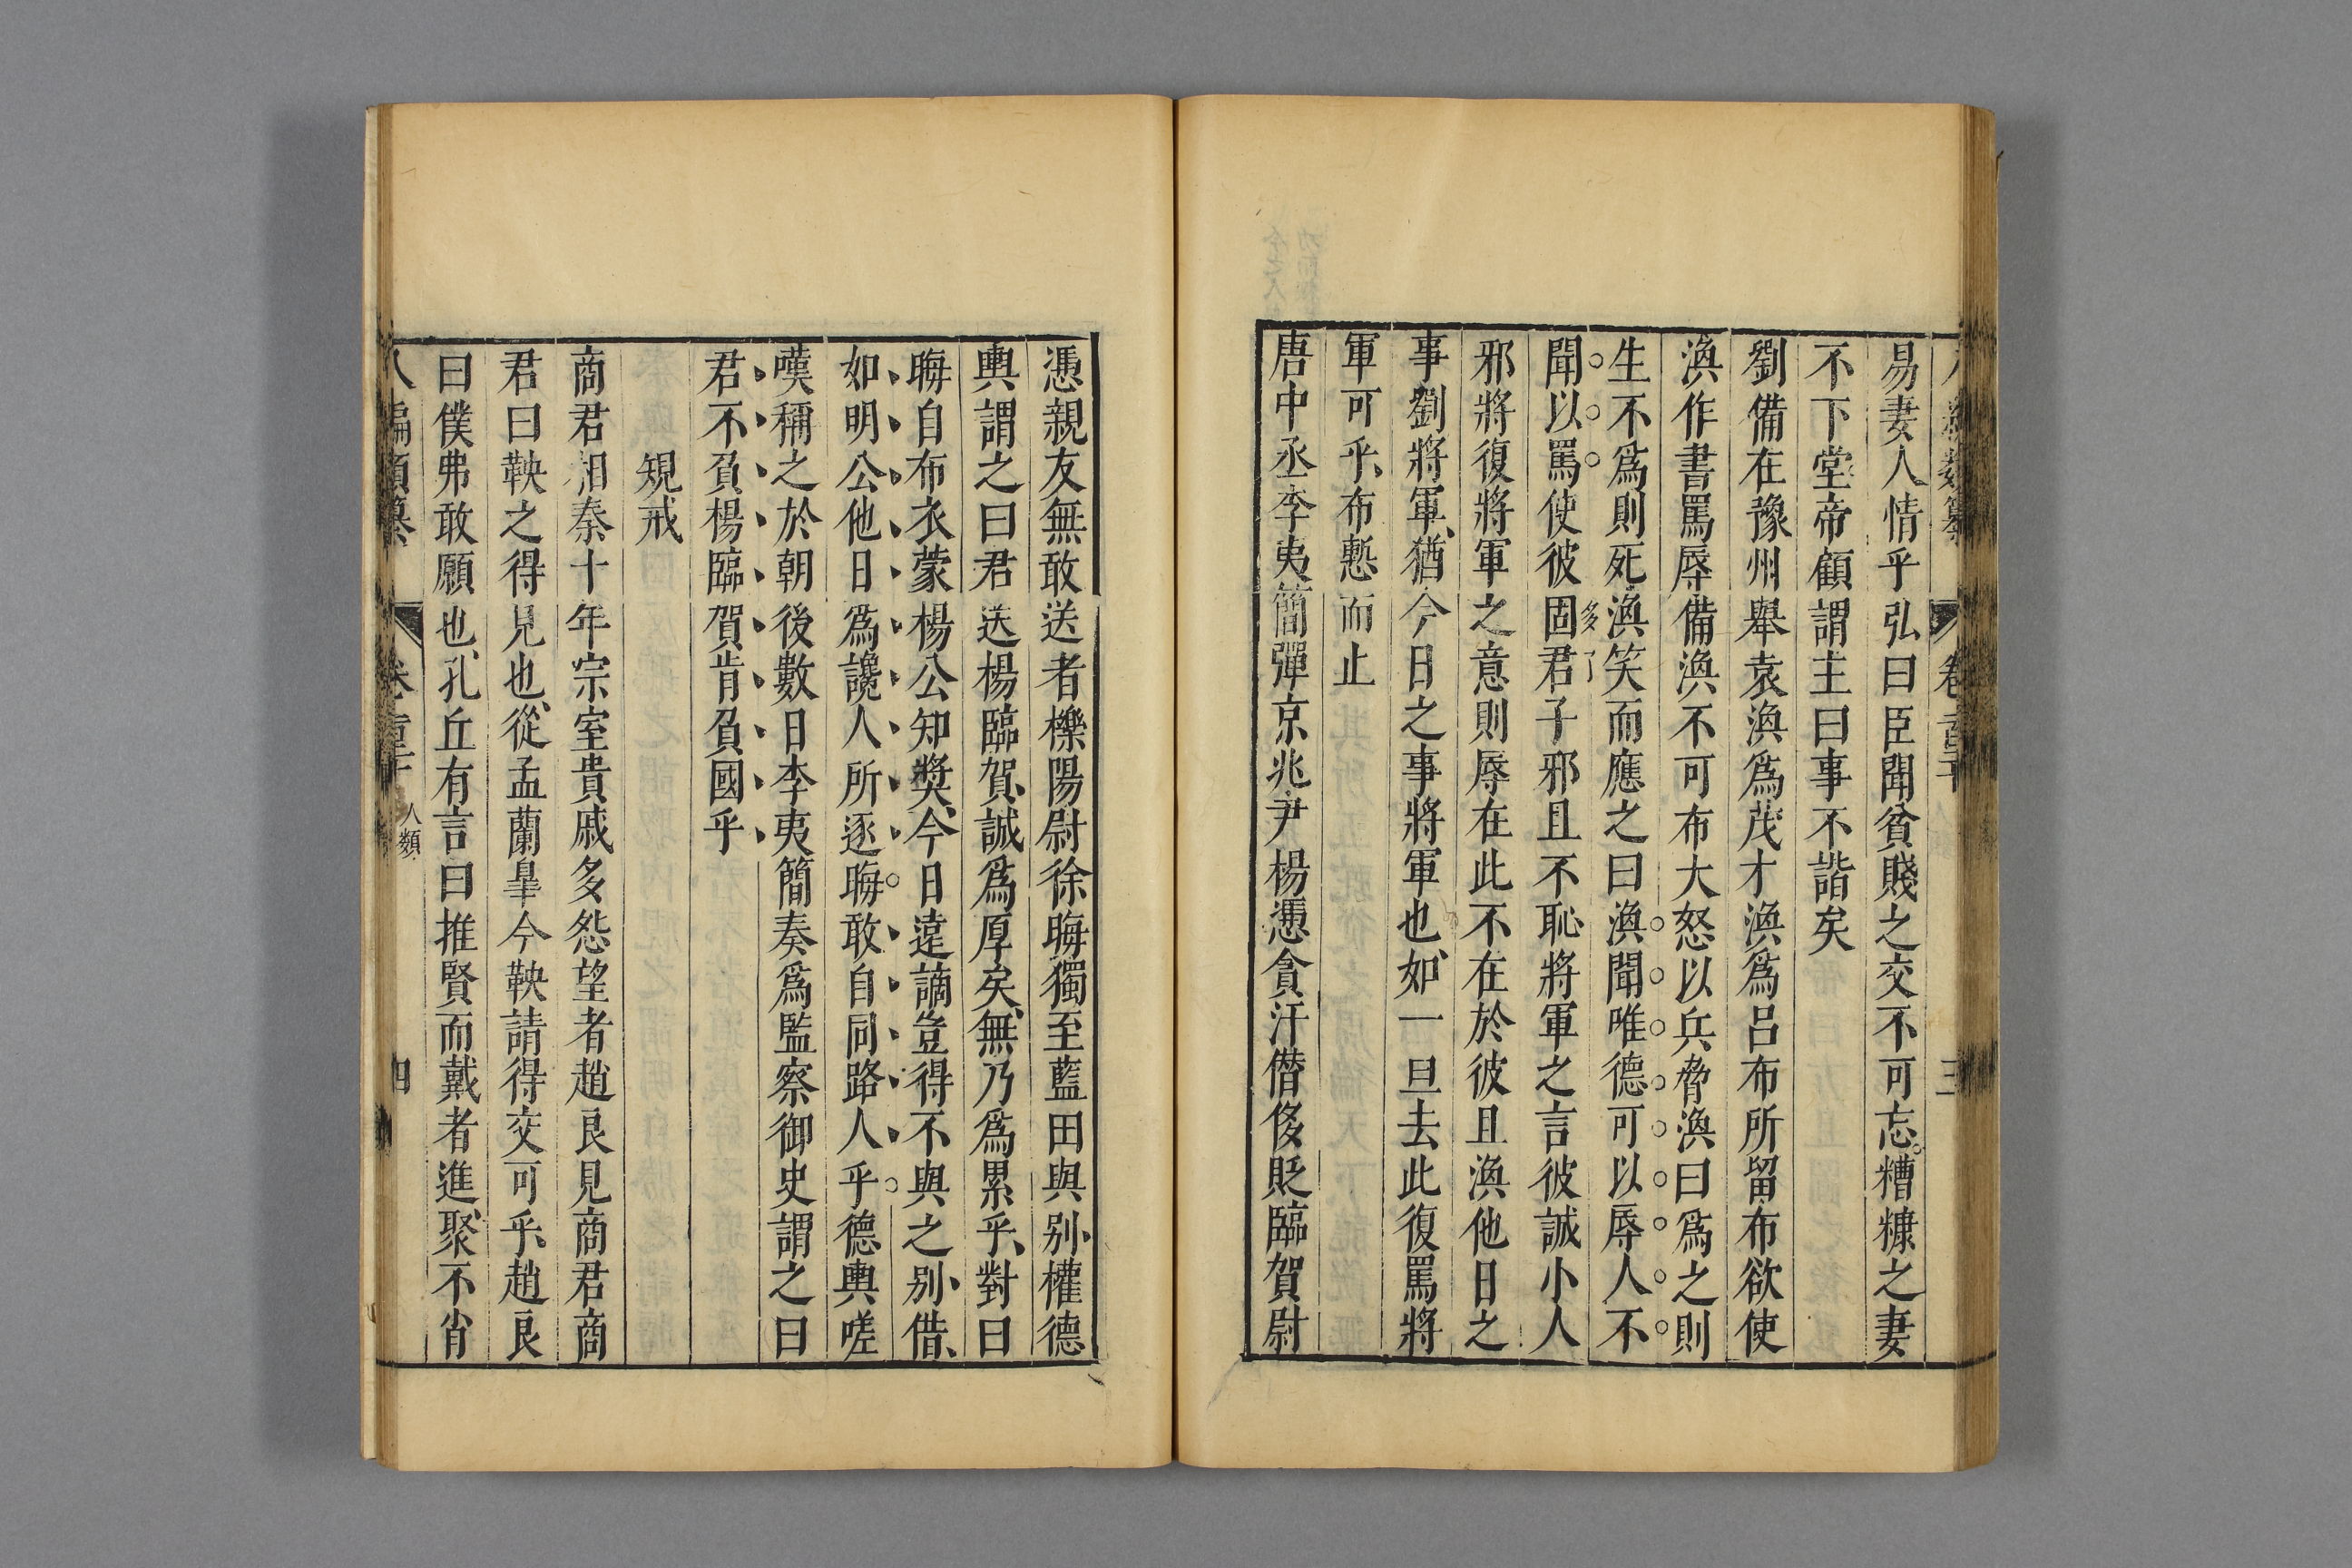 易妻人情乎弘曰臣聞貧賤之交不可忘糟糠之妻
不下堂帝顧謂主曰事不諧矣
劉備在豫州舉袁渙爲茂才渙爲呂布所留布欲使
渙作書罵辱備渙不可布大怒以兵脅渙曰爲之則
生不爲則死渙笑而應之曰渙聞唯德可以辱人不
聞以罵使彼固君子邪且不恥將軍之言彼誠小人
邪將復將軍之意則辱在此不在於彼且渙他日之
事劉將軍猶今日之事將軍也如一旦去此復罵將
軍可乎布慙而止
唐中丞李夷簡彈京兆尹楊憑貪汙僭侈貶臨賀尉
憑親友無敢送者櫟陽尉徐晦獨至藍田與別權德
輿謂之曰君送楊臨賀誠爲厚矣無乃爲累乎對曰
晦自布衣蒙楊公知奬今日遠謫豈得不與之別借
如明公他日爲讒人所逐晦敢自同路人乎德輿嗟
嘆稱之於朝後數日李夷簡奏爲監察御史謂之曰
君不負楊臨賀肯負國乎
規戒
商君相秦十年宗室貴戚多怨望者趙良見商君商
君曰鞅之得見也從孟蘭臯今鞅請得交可乎趙良
曰僕弗敢願也孔丘有言曰推賢而戴者進聚不肖
八編類纂
卷
人類
四